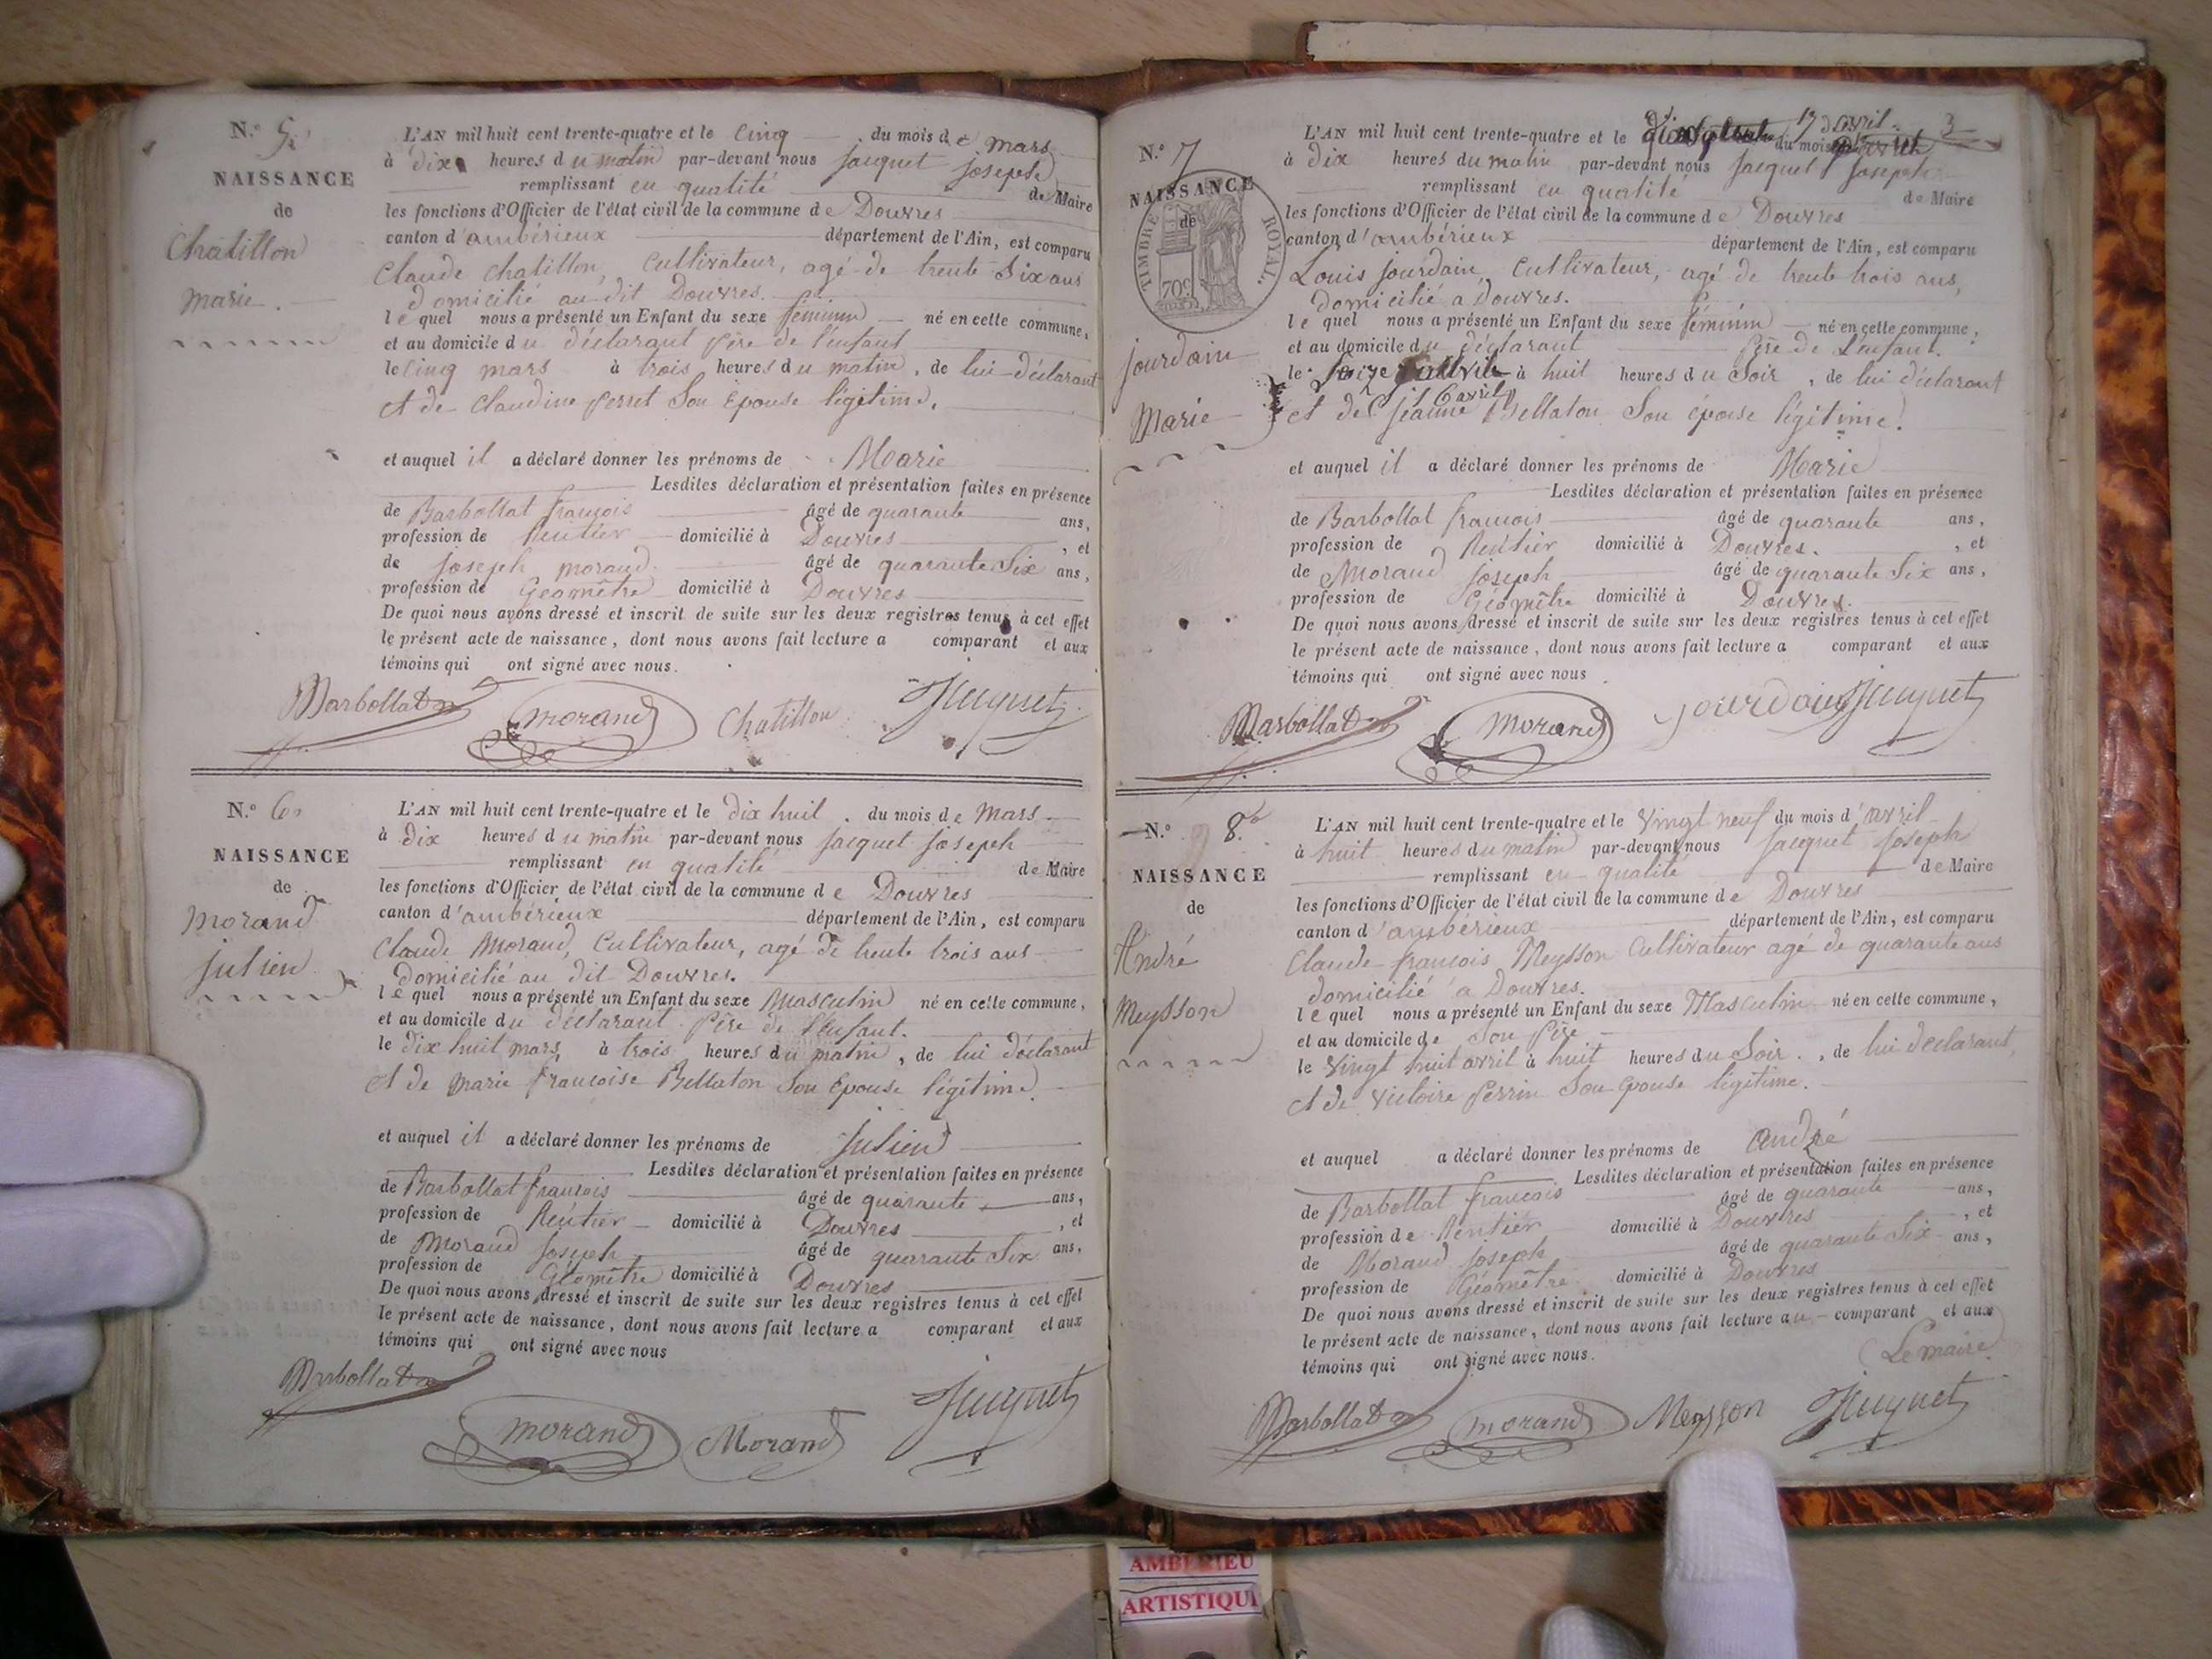 N.° 5.
NAISSANCE
de
Chatillon
Marie.
L'AN mil huit cent trente-quatre et le cinq du mois de mars
à dix heures du matin par-devant nous Jacquet Joseph
remplissant en qualité de Maire
les fonctions d'Officier de l'état civil de la commune de Douvres
canton d'ambérieux département de l'Ain, est comparu
Claude Chatillon, Cultivateur, agé de trente Six ans
domicilié au dit Douvres.
lequel nous a présenté un Enfant du sexe féminin né en cette commune,
et au domicile du déclarant père de l'enfant
le Cinq mars à trois heures du matin, de lui déclarant
et de Claudine perret Son Epouse légitime.
et auquel il a déclaré donner les prénoms de Marie
Lesdites déclaration et présentation faites en présence
de Barbollat françois âgé de quarante ans,
profession de Rentier domicilié à Douvres, et
de Joseph morand. âgé de quarante Six ans,
profession de Géomètre domicilié à Douvres
De quoi nous avons dressé et inscrit de suite sur les deux registres tenus à cet effet
le présent acte de naissance, dont nous avons fait lecture a comparant et aux
témoins qui ont signé avec nous.
Barbollat morand Chatillon Jacquet
N.° 6.
NAISSANCE
de
morand
julien
L'AN mil huit cent trente-quatre et le dix huit. du mois de Mars
à dix heures du matin par-devant nous Jacquet Joseph
remplissant en qualité de Maire
les fonctions d'Officier de l'état civil de la commune de Douvres
canton d'ambérieux département de l'Ain, est comparu
Claude Morand, Cultivateur, agé de trente trois ans
domicilié au dit Douvres.
lequel nous a présenté un Enfant du sexe Masculin né en cette commune,
et au domicile du déclarant père de l'Enfant.
le dix huit mars, à trois heures du matin, de lui déclarant
et de Marie françoise Bellaton Son Epouse légitime.
et auquel il a déclaré donner les prénoms de Julien
Lesdites déclaration et présentation faites en présence
de Barbollat françois âgé de quarante ans,
profession de Rentier domicilié à Douvres, et
de Morand Joseph âgé de quarante Six ans,
profession de Géomètre domicilié à Douvres
De quoi nous avons dressé et inscrit de suite sur les deux registres tenus à cet effet
le présent acte de naissance, dont nous avons fait lecture a comparant et aux
témoins qui ont signé avec nous
Barbollat morand Morand Jacquet
3
N.° 7
NAISSANCE
de
TIMBRE ROYAL.
70c
jourdain
Marie
L'AN mil huit cent trente-quatre et le 17 d'avril du mois
à dix heures du matin par-devant nous Jacquet Joseph
remplissant en qualité de Maire
les fonctions d'Officier de l'état civil de la commune de Douvres
canton d'ambérieux département de l'Ain, est comparu
Louis Jourdain, Cultivateur, agé de trente trois ans,
domicilié a Douvres.
lequel nous a présenté un Enfant du sexe féminin né en cette commune,
et au domicile du déclarant père de l'enfant.
le à huit heures du Soir, de lui déclarant
16 avril
et de Jeanne Bellaton Son épouse légitime.
et auquel il a déclaré donner les prénoms de Marie
Lesdites déclaration et présentation faites en présence
de Barbollat francois âgé de quarante ans,
profession de Rentier domicilié à Douvres., et
de Morand Joseph âgé de quarante Six ans,
profession de Géomètre domicilié à Douvres.
De quoi nous avons dressé et inscrit de suite sur les deux registres tenus à cet effet
le présent acte de naissance, dont nous avons fait lecture a comparant et aux
témoins qui ont signé avec nous.
Barbollat morand jourdain Jacquet
N.° 8.
NAISSANCE
de
André
Meysson
L'AN mil huit cent trente-quatre et le Vingt neuf du mois d'avril
à huit heures du matin par-devant nous Jacquet Joseph
remplissant en qualité de Maire
les fonctions d'Officier de l'état civil de la commune de Douvres
canton d'ambérieux département de l'Ain, est comparu
Claude francois Meysson Cultivateur agé de quarante ans
domicilié a Douvres.
lequel nous a présenté un Enfant du sexe Masculin né en cette commune,
et au domicile de Son père
le Vingt huit avril à huit heures du Soir., de lui déclarant,
et de Victoire perrin Son epouse légitime.
et auquel a déclaré donner les prénoms de andré
Lesdites déclaration et présentation faites en présence
de Barbollat francois âgé de quarante ans,
profession de Rentier domicilié à Douvres, et
de Morand Joseph âgé de quarante Six ans,
profession de Géomètre domicilié à Douvres
De quoi nous avons dressé et inscrit de suite sur les deux registres tenus à cet effet
le présent acte de naissance, dont nous avons fait lecture au comparant et aux
témoins qui ont signé avec nous.
Le maire
Barbollat morand Meysson Jacquet
AMBERIEU
ARTISTIQU